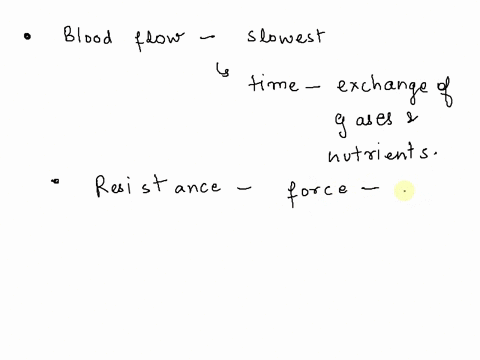 • Blood flow - slowest
↳ time - exchange of
gases &
nutrients.
• Resistance - force -